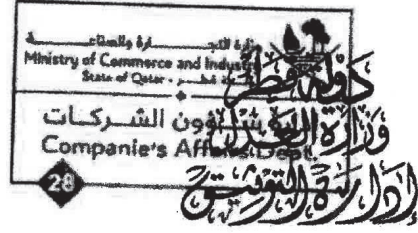 وزارة التجارة والصناعة
Ministry of Commerce and Industry
State of Qatar - دولة قطر
شؤون الشركات
Companie's Affairs Dept.
28
دولة قطر
وزارة العدل
إدارة التوثيق